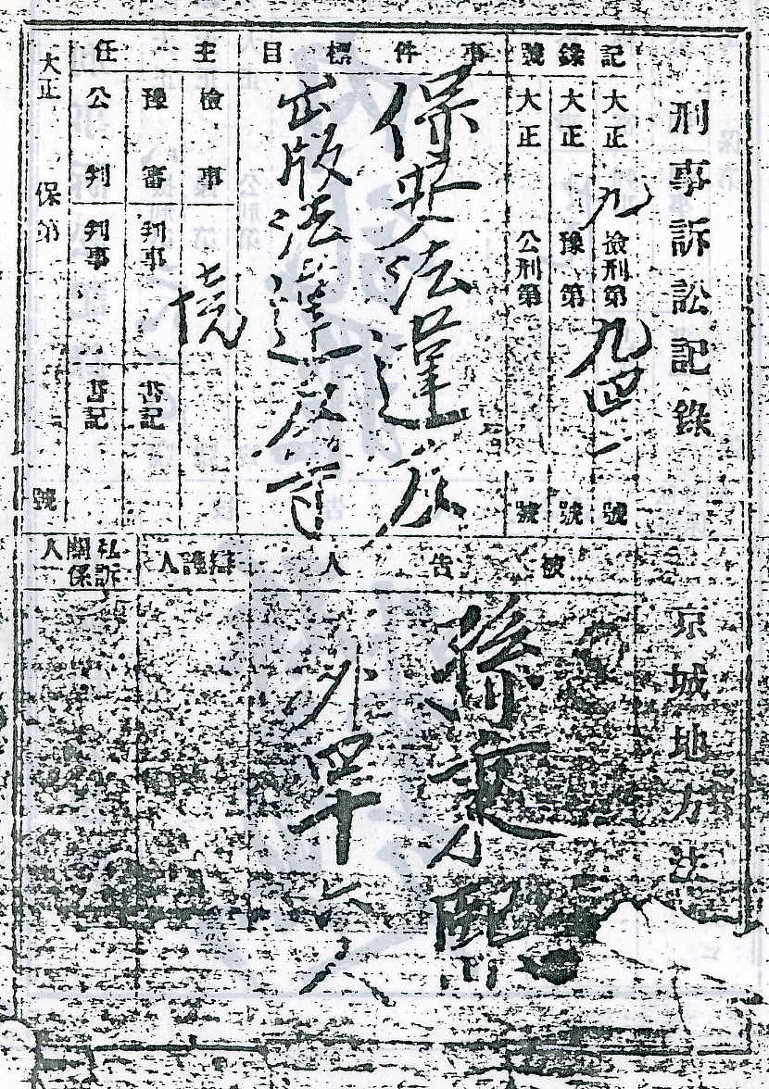 刑事訴訟記錄
京城地方法
記錄號
大正九檢刑第九四一號
大正 豫第 號
大正 公刑第 號
事件標目
保安法違反
出版法違反等
主任
檢事 境
豫審判事 書記
公判判事 書記
大正 保第 號
被告人
孫秉熙
外四十六人
辯護人
私訴關係人